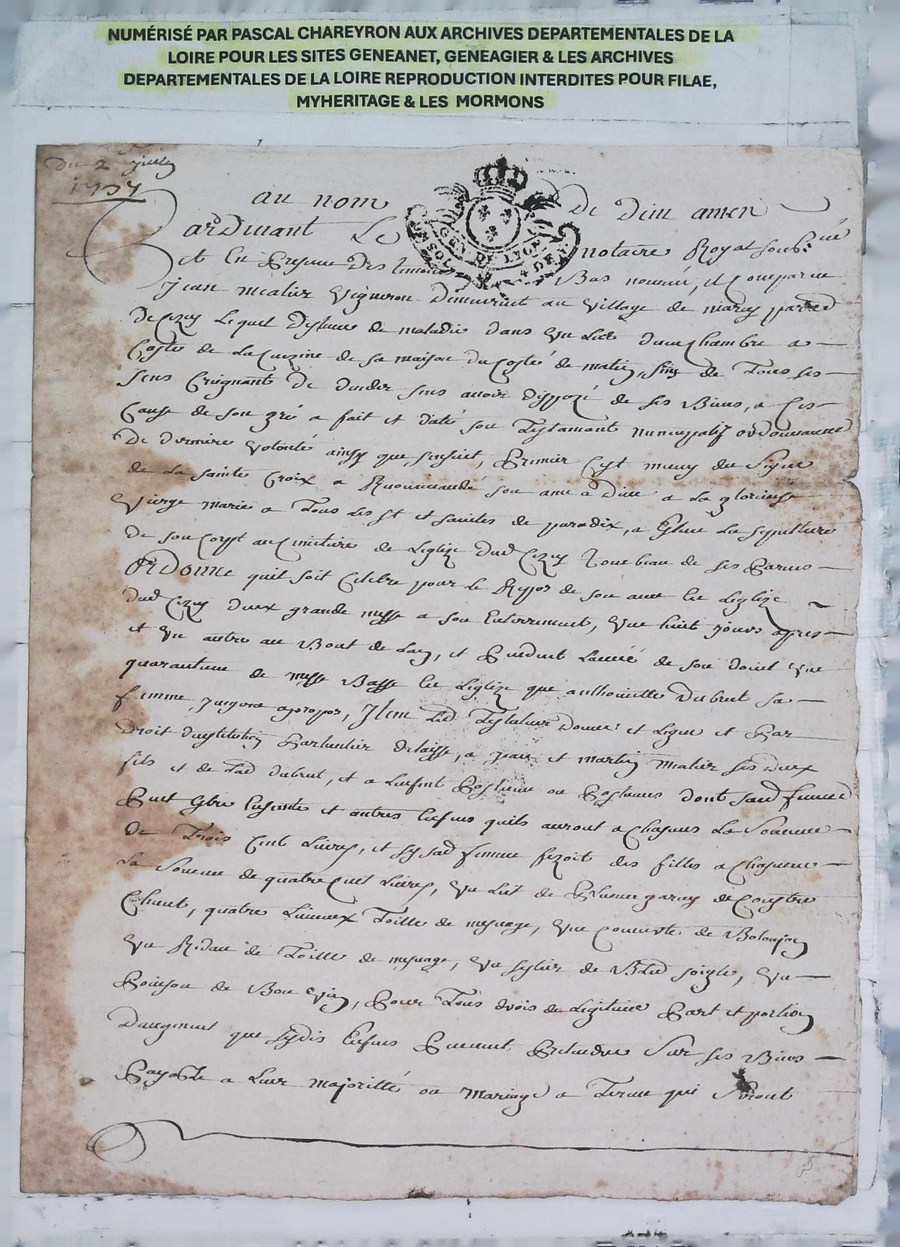 NUMÉRISÉ PAR PASCAL CHAREYRON AUX ARCHIVES DEPARTEMENTALES DE LA
LOIRE POUR LES SITES GENEANET, GENEAGIER & LES ARCHIVES
DEPARTEMENTALES DE LA LOIRE REPRODUCTION INTERDITES POUR FILAE,
MYHERITAGE & LES MORMONS
Du 2 juillet
1737
au nom de dieu amen
GEN DE LYON
Pardevant Le notaire Royal soubs.né
Et En presence Des temoins Bas nommés, est comparu
jean mealier vigneron demeurant au village de parr.
de Cezay Lequel de maladie dans un Lict dune chambre a
Costé de La Cuizine de sa maison du costé de matin, de Tous ses
sens Craignant De deceder sans avoir disposé de ses Biens, a Ces
Cause de son gré a fait et son Testament nuncupatif ordonnance
de derniere volonté ainsy que sensuit, Premier sest muny du signe
de La sainte Croix a Recommandé son ame a Dieu a La glorieuse
Vierge marie a Tous Les st et saintes de paradix, a Eleu La sepulture
de son corps au cimetiere de Leglize dud Cezay Tombeau de ses Parens
Ordonne quil soit Celebré pour le Repos de son ame En Leglize
dud Cezay deux grande messe a son Enterrement, une huit jours apres
et un autre au Bout de Lan, et Pendant Lannée de son une
quarantaine de messe Basse En Leglize que anthoinette Dubrut sa
femme, jugera apropos, Item Led Testateur donne et Legue et Par
droit dinstitution Particuliere delaisse, a jean et martin mealier ses deux
fils et de Lad dubrut, et a Lenfent Postume ou Postumes dont sad femme
Peut Estre Enceinte et autres Enfens quils auront a Chacuns La Somme
de Trois Cent Livres, et sy sad femme fezoit des filles a Chacune
La Somme de quatre Cent Livres, un Lit de Plume garny de Couestre
Chevet, quatre Linceux Toille de mesnage, une couverte de
un Ridau de Toille de mesnage, un de Bled soigle, un
Poinson de Bon vin, Pour Tous drois de Legitime Part et portion
daugment que sesdis Enfens Peuvent Pretendre Sur ses Biens
Payable a Leur majorité ou mariage a Terme qui Seront